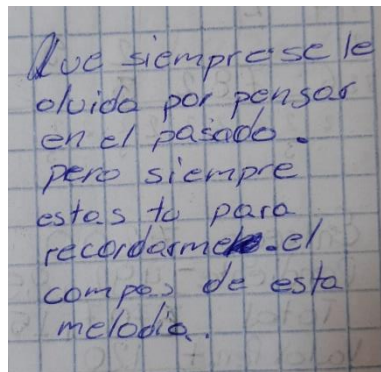 Que siempre se le
olvida por pensar
en el pasado.
pero siempre
estas tu para
recordarme el
compas de esta
melodia.